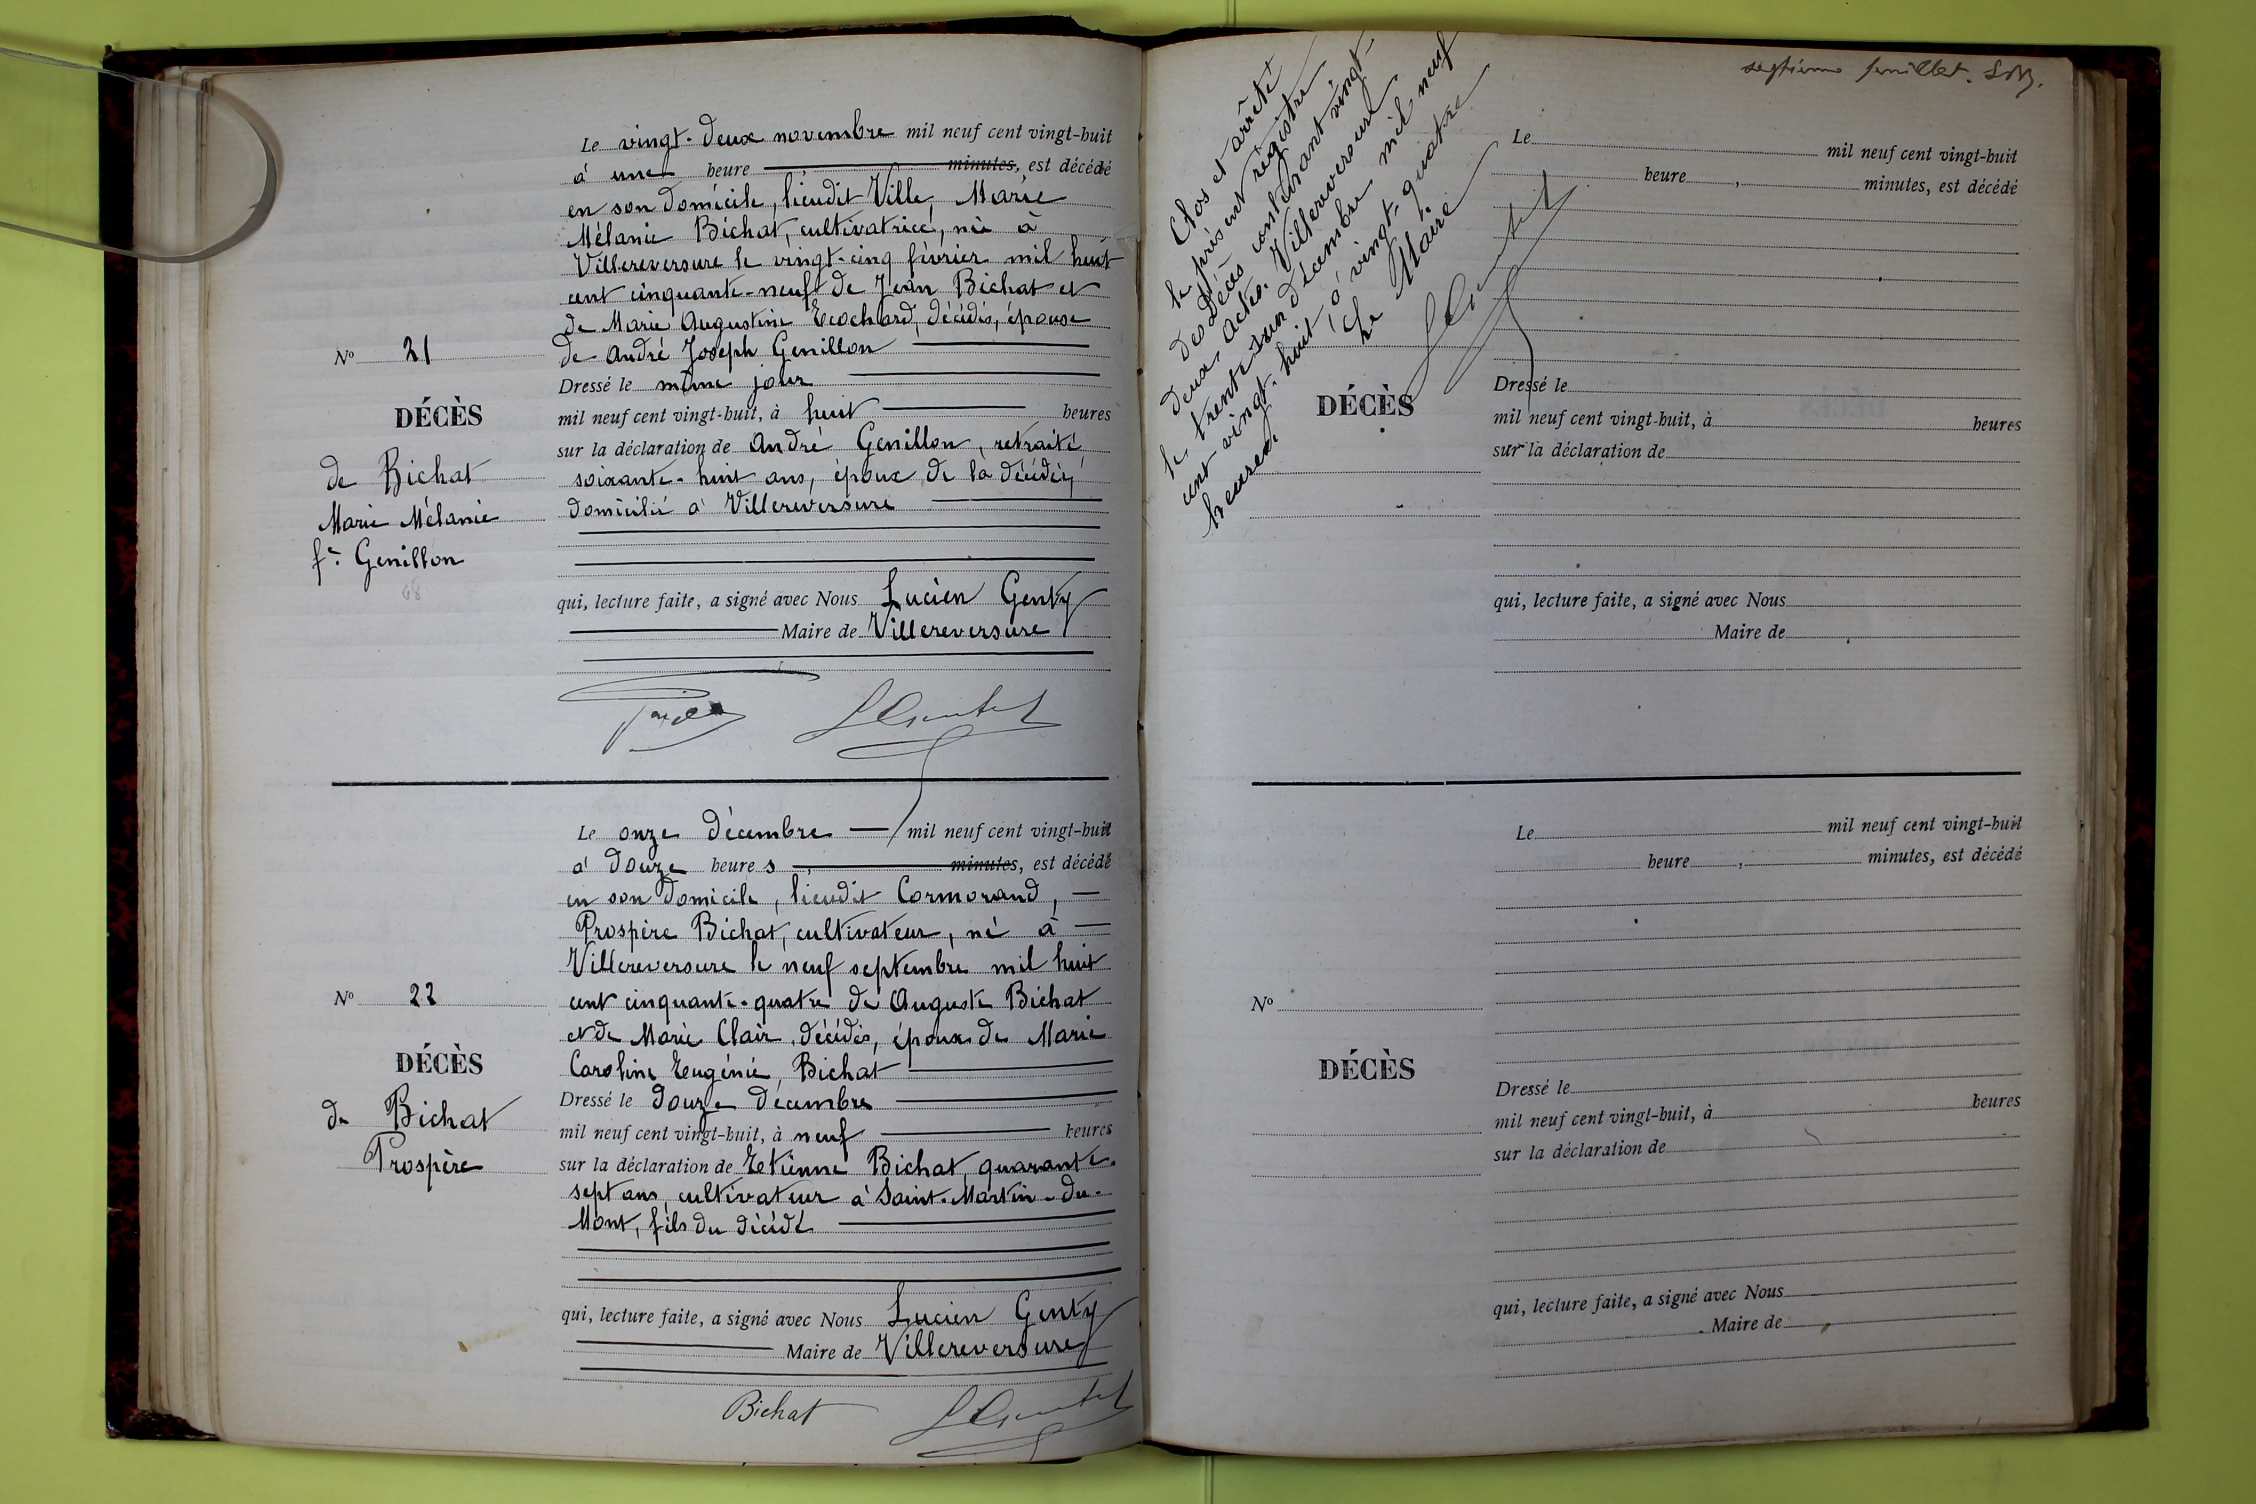 Le vingt-deux novembre mil neuf cent vingt-huit
à une heure minutes, est décédée
en son domicile, lieudit Ville, Marie
Mélanie Bichat, cultivatrice, née à
Villereversure le vingt-cinq février mil huit
cent cinquante-neuf de Jean Bichat et
de Marie Augustine Ecochard, décédés, épouse
de André Joseph Genillon
Nº 21
Dressé le même jour
DÉCÈS
mil neuf cent vingt-huit, à huit heures
sur la déclaration de André Genillon, retraité
de Bichat
soixante-huit ans, époux de la décédée,
Marie Mélanie
domicilié à Villereversure
fe. Genillon
68
qui, lecture faite, a signé avec Nous Lucien Genty
Maire de Villereversure
Le onze décembre mil neuf cent vingt-huit
à douze heures minutes, est décédé
en son domicile, lieudit Cormorand,
Prospère Bichat, cultivateur, né à
Villereversure le neuf septembre mil huit
Nº 22
cent cinquante-quatre de Auguste Bichat
et de Marie Clair, décédés, époux de Marie
DÉCÈS
Caroline Eugénie, Bichat
Dressé le douze décembre
de Bichat
mil neuf cent vingt-huit, à neuf heures
Prospère
sur la déclaration de Etienne Bichat, quarante-
sept ans, cultivateur à Saint-Martin-du-
Mont, fils du décédé
qui, lecture faite, a signé avec Nous Lucien Genty
Maire de Villereversure
Bichat
septième feuillet.
Clos et arrêté
le présent registre
des Décès contenant vingt-
deux actes. Villereversure
le trente et un décembre mil neuf
cent vingt-huit à vingt-quatre
heures.
Le Maire
Le mil neuf cent vingt-huit
heure minutes, est décédé
DÉCÈS
Dressé le
mil neuf cent vingt-huit, à heures
sur la déclaration de
qui, lecture faite, a signé avec Nous
Maire de
Le mil neuf cent vingt-huit
heure minutes, est décédé
Nº
DÉCÈS
Dressé le
mil neuf cent vingt-huit, à heures
sur la déclaration de
qui, lecture faite, a signé avec Nous
Maire de